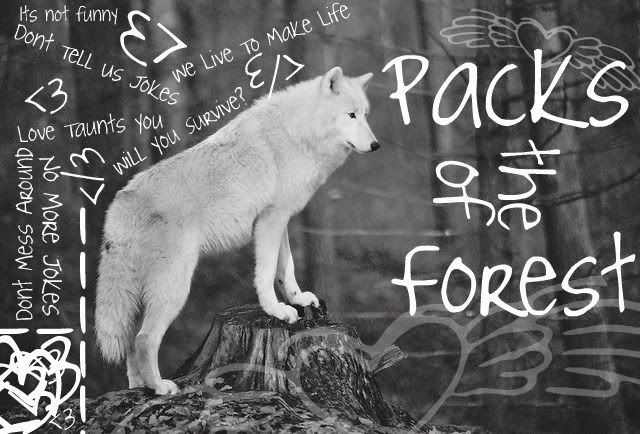 Its not funny
Dont Tell us Jokes
We Live To Make Life
<3
Love Taunts You
Will you survive?
Dont Mess Around
No More Jokes
Packs
of
the
Forest
ε>
ε/>
</3
<3